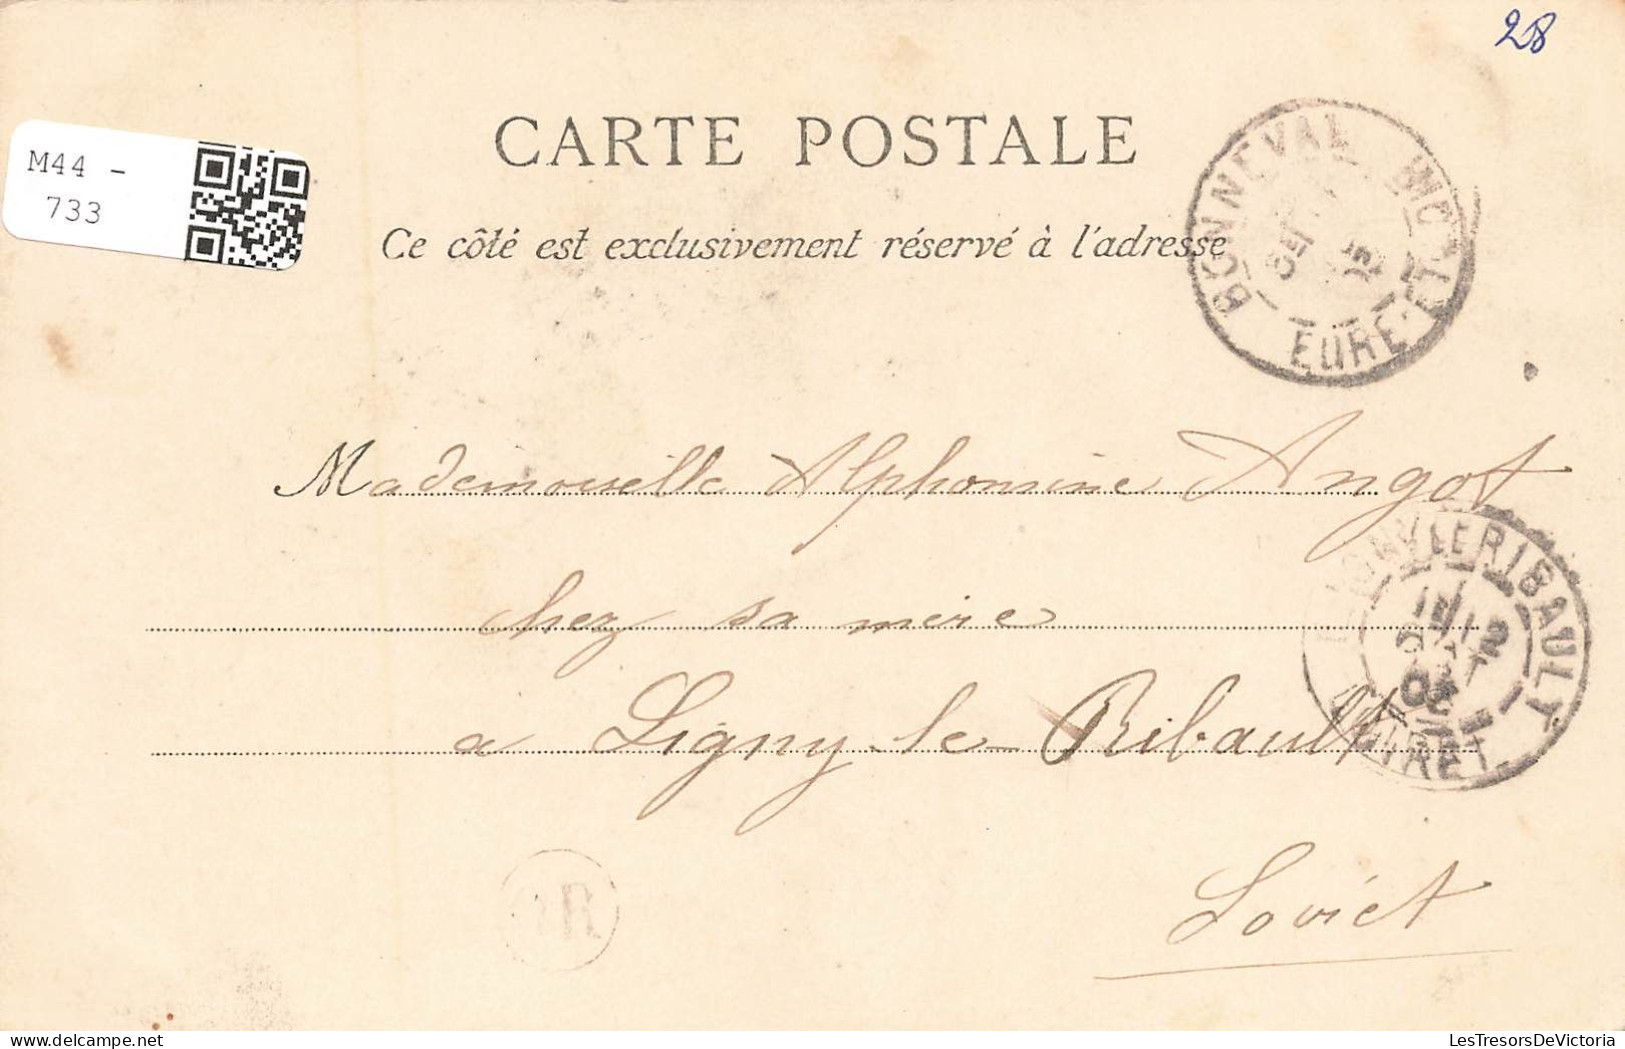 28
CARTE POSTALE
M44 -
733
Ce côté est exclusivement réservé à l'adresse
BONNEVAL
EURE-ET-L
Mademoiselle Alphonsine Angot
LIGNY LE RIBAULT
12
LOIRET
chez sa mère
à Ligny-le-Ribault
Loiret
R
LesTresorsDeVictoria